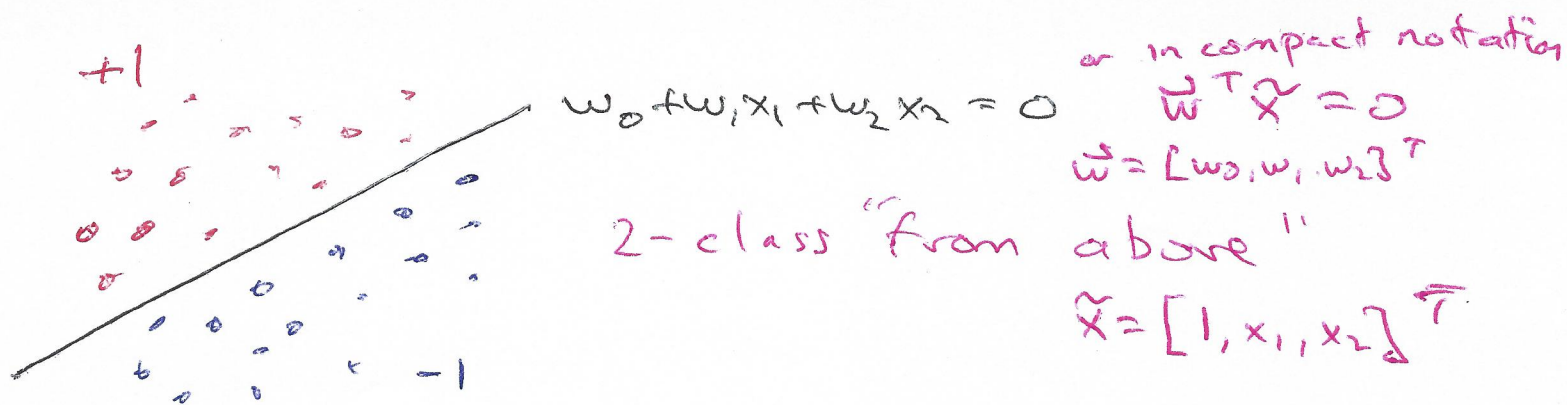 +1
w₀ + w₁x₁ + w₂x₂ = 0
or in compact notation
w⃗ᵀx̃ = 0
w⃗ = [w₀, w₁, w₂]ᵀ
2-class "from above"
x̃ = [1, x₁, x₂]ᵀ
-1